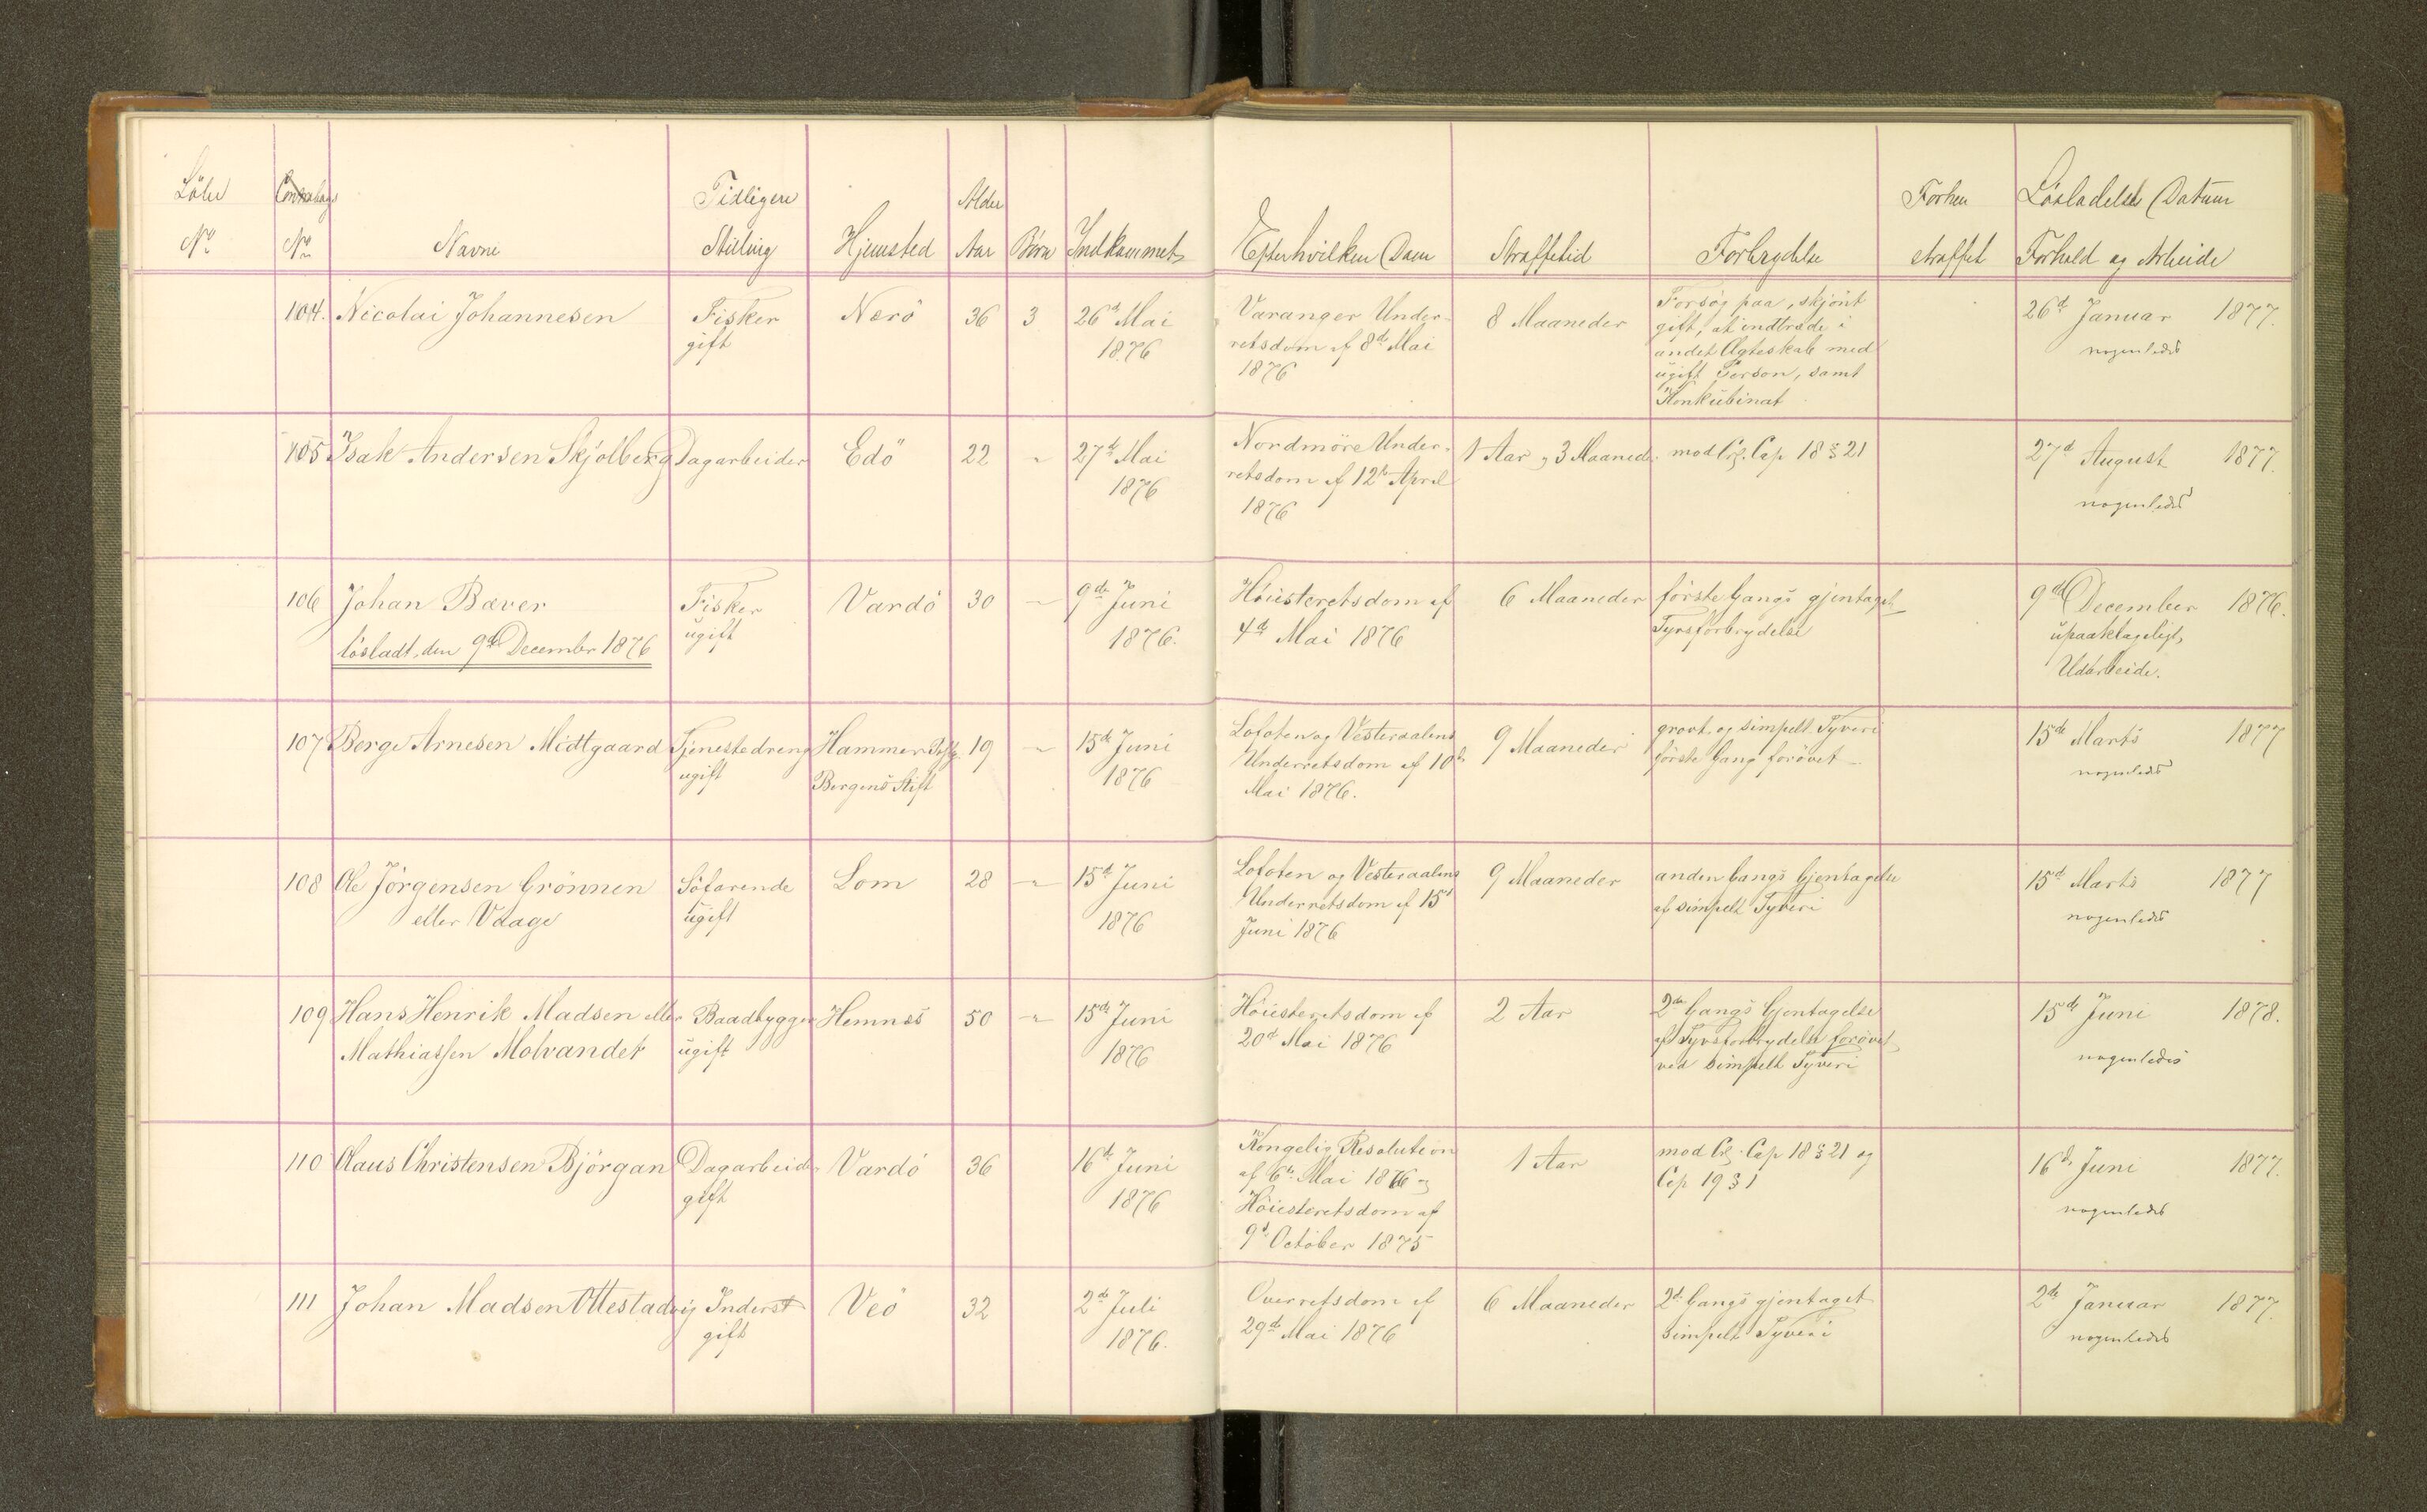 Löbe
No
Contrabogs
No
Navne
Tidligere
Stilling
Hjemsted
Alder
Aar
Börn
Indkommet
Efter hvilken Dom
Straffetid
Forbrydelse
Forhen
straffet
Lösladelses Datum
Forhold og Arbeide
104.
Nicolai Johannesen
Fisker
gift
Nerö
36
3
26d Mai
1876
Varanger Under-
retsdom af 8d Mai
1876
8 Maaneder
Forsög paa, skjönt
gift, at indtræde i
andet Ægteskab med
ugift Person, samt
Konkubinat
26d Januar 1877.
nogenledes
105
Isak Andersen Skjölberg
Dagarbeider
Edö
22
"
27d Mai
1876
Nordmöre Under-
retsdom af 12te April
1876
1 Aar og 3 Maaneder
mod Crl. Cap 18 § 21
27d August 1877.
nogenledes
106
Johan Bæver
lösladt den 9de December 1876
Fisker
ugift
Vardö
30
"
9de Juni
1876.
Höiesteretsdom af
4de Mai 1876
6 Maaneder
förste Gangs gjentaget
Tyvsforbrydelse
9de December 1876.
upaaklageligt,
Udarbeide.
107
Berge Arnesen Midtgaard
Tjenestedreng
ugift
Hammer Prstg.
Bergens Stift
19
"
15de Juni
1876
Lofoten og Vesteraalens
Underretsdom af 10de
Mai 1876.
9 Maaneder
grovt og simpelt Tyveri
förste Gang forövet
15de Marts 1877
nogenledes
108
Ole Jörgensen Grönnen
eller Vaage
Söfarende
ugift
Lom
28
"
15d Juni
1876
Lofoten og Vesteraalens
Underretsdom af 15d
Juni 1876
9 Maaneder
anden Gangs Gjentagelse
af simpelt Tyveri
15d Marts 1877
nogenledes
109
Hans Henrik Madsen eller
Mathiassen Molvandet
Baadbygger
ugift
Hemnæs
50
"
15de Juni
1876
Höiesteretsdom af
20d Mai 1876
2 Aar
2den Gangs Gjentagelse
af Tyvsforbrydelse forövet
ved simpelt Tyveri
15de Juni 1878.
nogenledes
110
Claus Christensen Björgan
Dagarbeider
gift
Vardö
36
16de Juni
1876
Kongelig Resolution
af 6te Mai 1876 og
Höiesteretsdom af
9d October 1875
1 Aar
mod Crl. Cap 18 § 21 og
Cap 19 § 1
16d Juni 1877.
nogenledes
111
Johan Madsen Ottestadvig
Inderst
gift
Veö
32
2d Juli
1876.
Overretsdom af
29d Mai 1876
6 Maaneder
2d Gangs gjentaget
simpelt Tyveri
2de Januar 1877.
nogenledes